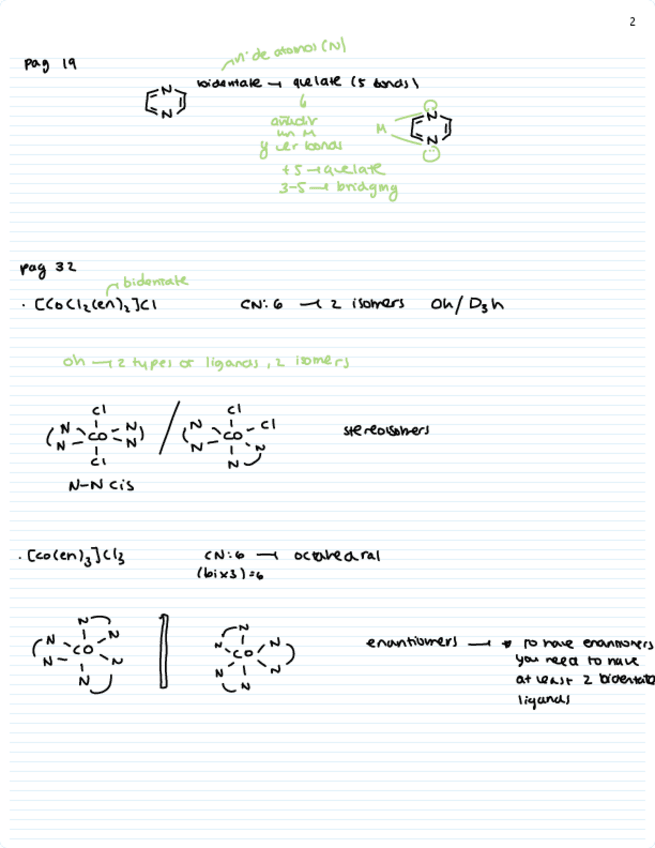 2
pag 19
nº de atomos (N)
bidentate → quelate (5 bonds)
N
N
añadir
un M
y ver bonds
M
N
N
+5 → quelate
3-5 → bridging
pag 32
bidentate
· [CoCl2(en)2]Cl CN: 6 → 2 isomers Oh / D3h
oh → 2 types of ligands, 2 isomers
Cl Cl
N N N Cl
Co Co
N N N N
Cl N
stereoisomers
N-N cis
· [Co(en)3]Cl3 CN: 6 → octahedral
(bix3)=6
N N
N N N N
Co Co
N N N N
N N
enantiomers → * to have enantiomers
you need to have
at least 2 bidentate
ligands